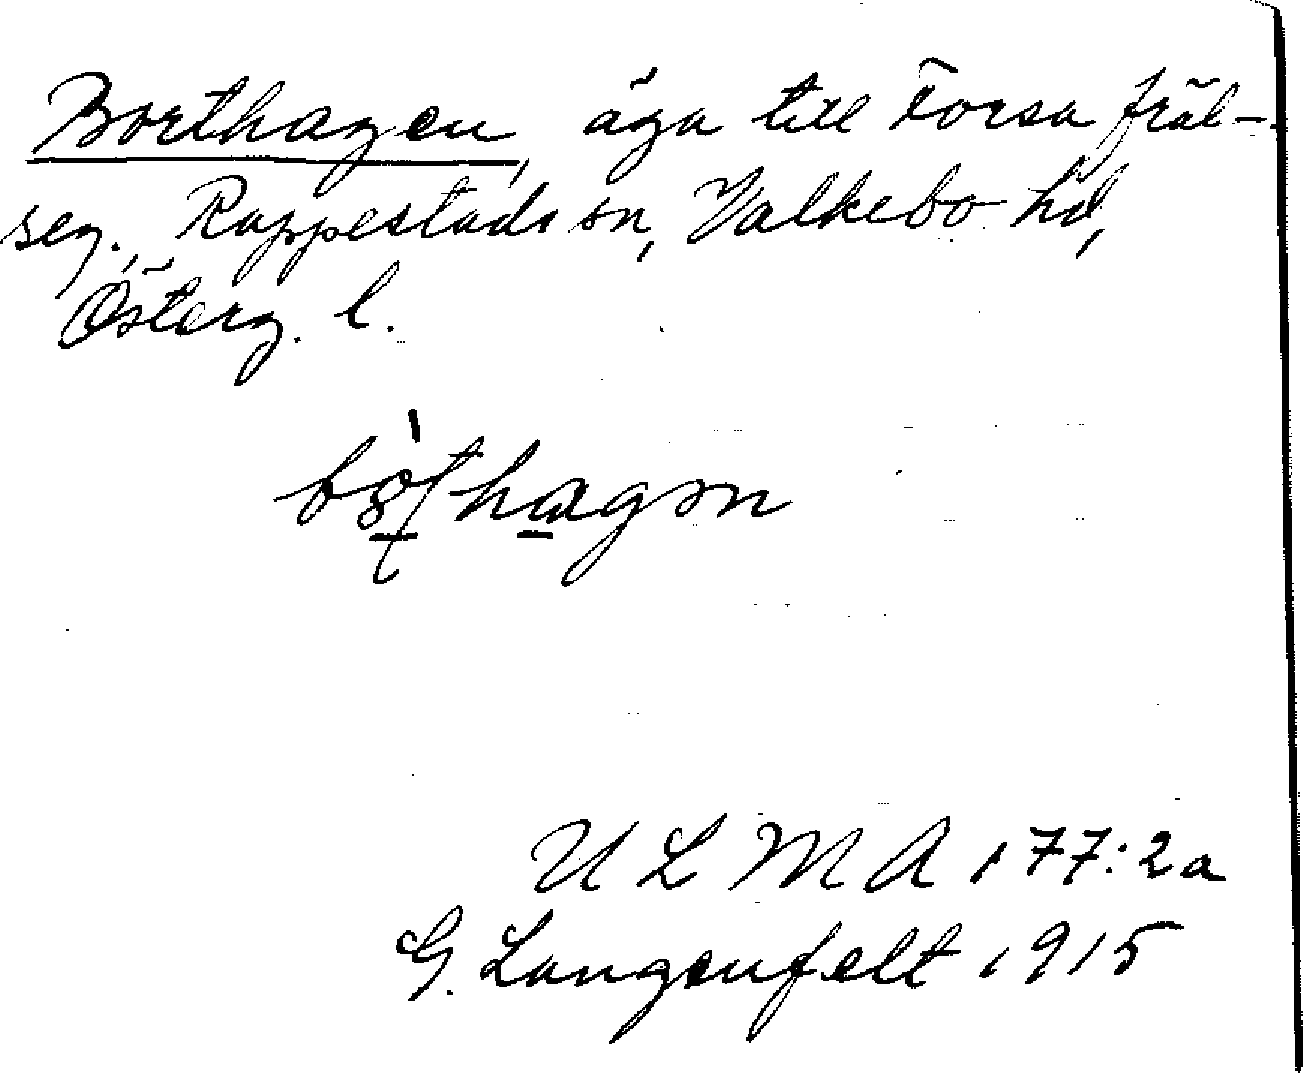 Borthagen, äga till Torsa fräl-
seg., Rappestads sn, Valkebo hd,
Österg. l.
ULMA 177:2a
G. Langenfelt 1915